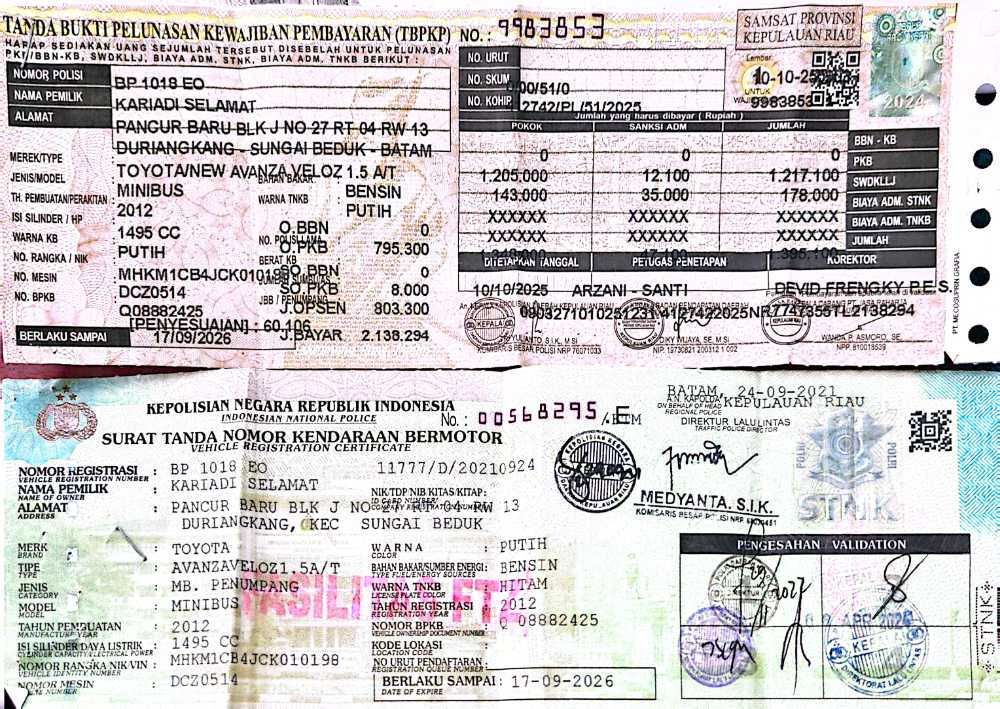 TANDA BUKTI PELUNASAN KEWAJIBAN PEMBAYARAN (TBPKP) NO.: 9983853
HARAP SEDIAKAN UANG SEJUMLAH TERSEBUT DISEBELAH UNTUK PELUNASAN
PKB/BBN-KB, SWDKLLJ, BIAYA ADM. STNK, BIAYA ADM. TNKB BERIKUT :
SAMSAT PROVINSI
KEPULAUAN RIAU
2024
NOMOR POLISI BP 1018 EO
NAMA PEMILIK KARIADI SELAMAT
ALAMAT PANCUR BARU BLK J NO 27 RT 04 RW-13
DURIANGKANG - SUNGAI BEDUK - BATAM
MEREK/TYPE : TOYOTA/NEW AVANZA VELOZ 1.5 A/T
JENIS/MODEL : MINIBUS BAHAN BAKAR : BENSIN
TH. PEMBUATAN/PERAKITAN : 2012 WARNA TNKB : PUTIH
ISI SILINDER / HP : 1495 CC O.BBN 0
WARNA KB : PUTIH NO. POLISI LAMA O.PKB 795.300
NO. RANGKA / NIK : MHKM1CB4JCK010198 BERAT KB SO.BBN 0
NO. MESIN : DCZ0514 SO.PKB 8.000
NO. BPKB : Q08882425 JBB / PENUMPANG J.OPSEN 803.300
[PENYESUAIAN] : 60.106
BERLAKU SAMPAI 17/09/2026 J.BAYAR : 2.138.294
NO. URUT
NO. SKUM /00/51/0
NO. KOHIR 2742/PL/51/2025
Lembar
10-10-25
UNTUK
9983853
Jumlah yang harus dibayar ( Rupiah )
POKOK SANKSI ADM JUMLAH
0 0 0 BBN - KB
1.205.000 12.100 1.217.100 PKB
143.000 35.000 178.000 SWDKLLJ
XXXXXX XXXXXX XXXXXX BIAYA ADM. STNK
XXXXXX XXXXXX XXXXXX BIAYA ADM. TNKB
1.395.100 JUMLAH
DITETAPKAN TANGGAL PETUGAS PENETAPAN KOREKTOR
10/10/2025 ARZANI - SANTI DEVID FRENGKY.P.E.S.
KEPALA
YULIANTO, S.I.K., M.Si
KOMBARS BESAR POLISI NRP 76071033
DIKY WIJAYA, SE, M.SI
NIP. 19730821 200312 1 002
WANDA P. ASMORO, SE.
NPP. 810018539
KEPOLISIAN NEGARA REPUBLIK INDONESIA
INDONESIAN NATIONAL POLICE
No.: 00568295 /E
SURAT TANDA NOMOR KENDARAAN BERMOTOR
VEHICLE REGISTRATION CERTIFICATE
BATAM, 24-09-2021
A.N KAPOLDA KEPULAUAN RIAU
ON BEHALF OF HEAD
REGIONAL POLICE
DIREKTUR LALU LINTAS
TRAFFIC POLICE DIRECTOR
MEDYANTA, S.I.K.
STNK
NOMOR REGISTRASI : BP 1018 EO 11777/D/20210924
VEHICLE REGISTRATION NUMBER
NAMA PEMILIK : KARIADI SELAMAT
NAME OF OWNER
NIK/TDP NIB/KITAS/KITAP:
ALAMAT : PANCUR BARU BLK J NO RW 13
ADDRESS
DURIANGKANG, KEC SUNGAI BEDUK
MERK : TOYOTA
BRAND
WARNA : PUTIH
COLOR
TIPE : AVANZAVELOZ1.5A/T
TYPE
BAHAN BAKAR/SUMBER ENERGI : BENSIN
TYPE FUEL/ENERGY SOURCES
JENIS : MB. PENUMPANG
CATEGORY
WARNA TNKB : HITAM
LICENSE PLATE COLOR
MODEL : MINIBUS
MODEL
TAHUN REGISTRASI : 2012
REGISTRATION YEAR
FASILITAS FTZ
TAHUN PEMBUATAN : 2012
MANUFACTURE YEAR
NOMOR BPKB : Q 08882425
VEHICLE OWNERSHIP DOCUMENT NUMBER
ISI SILINDER/DAYA LISTRIK : 1495 CC
CYLINDER CAPACITY/ELECTRICAL POWER
KODE LOKASI :
LOCATION CODE
NOMOR RANGKA/NIK/VIN : MHKM1CB4JCK010198
VEHICLE IDENTITY NUMBER
NO URUT PENDAFTARAN :
REGISTRATION QUEUE NUMBER
NOMOR MESIN : DCZ0514
BERLAKU SAMPAI : 17-09-2026
DATE OF EXPIRE
PENGESAHAN / VALIDATION
STNK